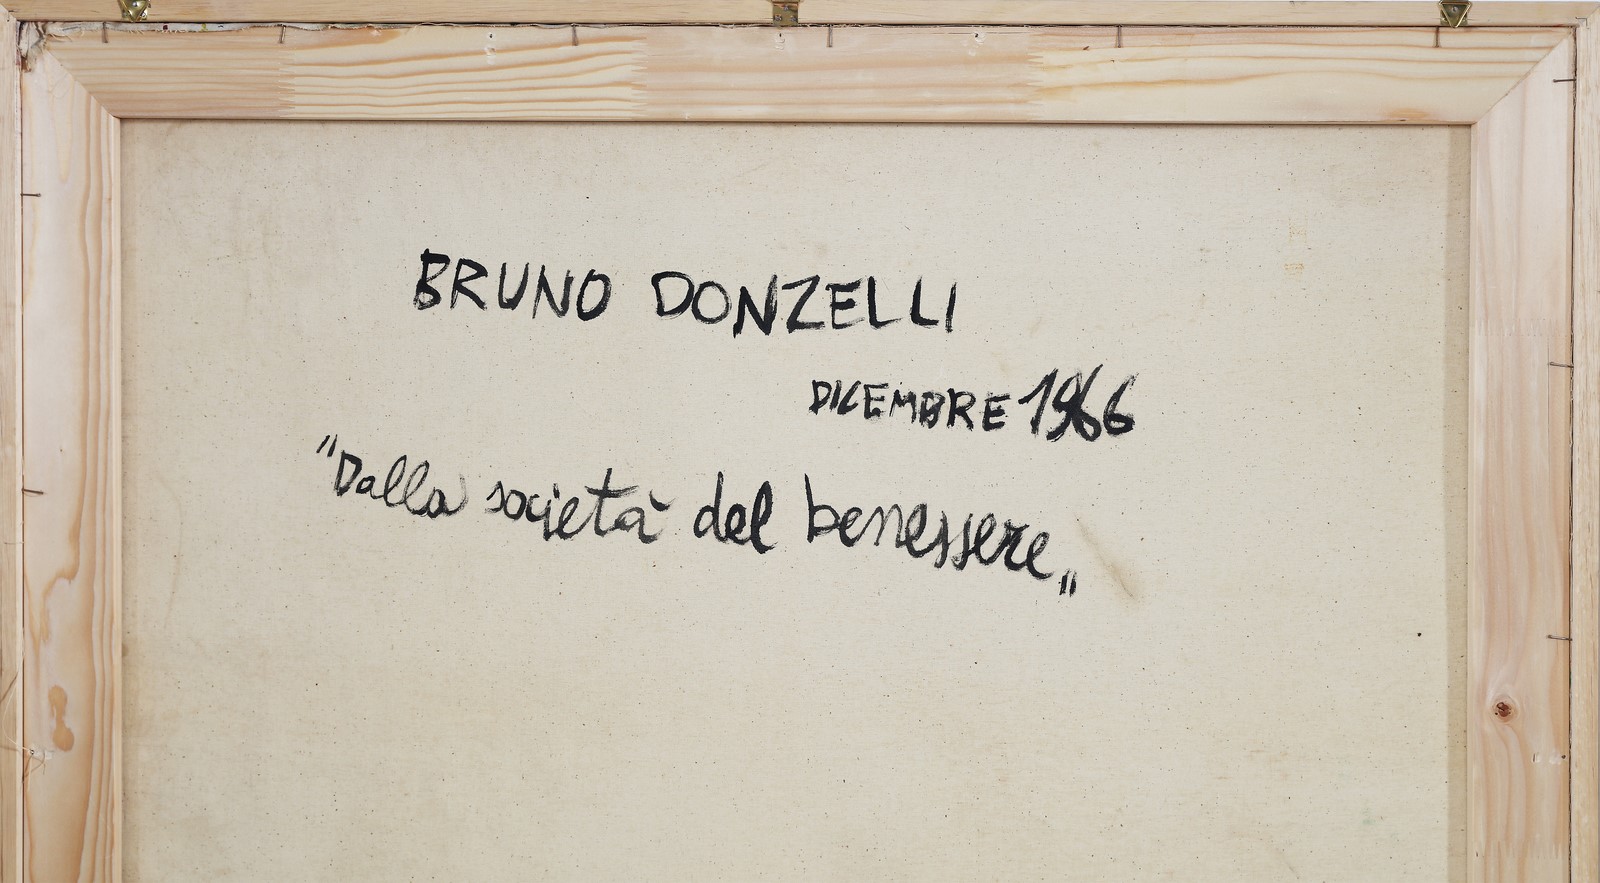 BRUNO DONZELLI
DICEMBRE 1966
"Dalla società del benessere„